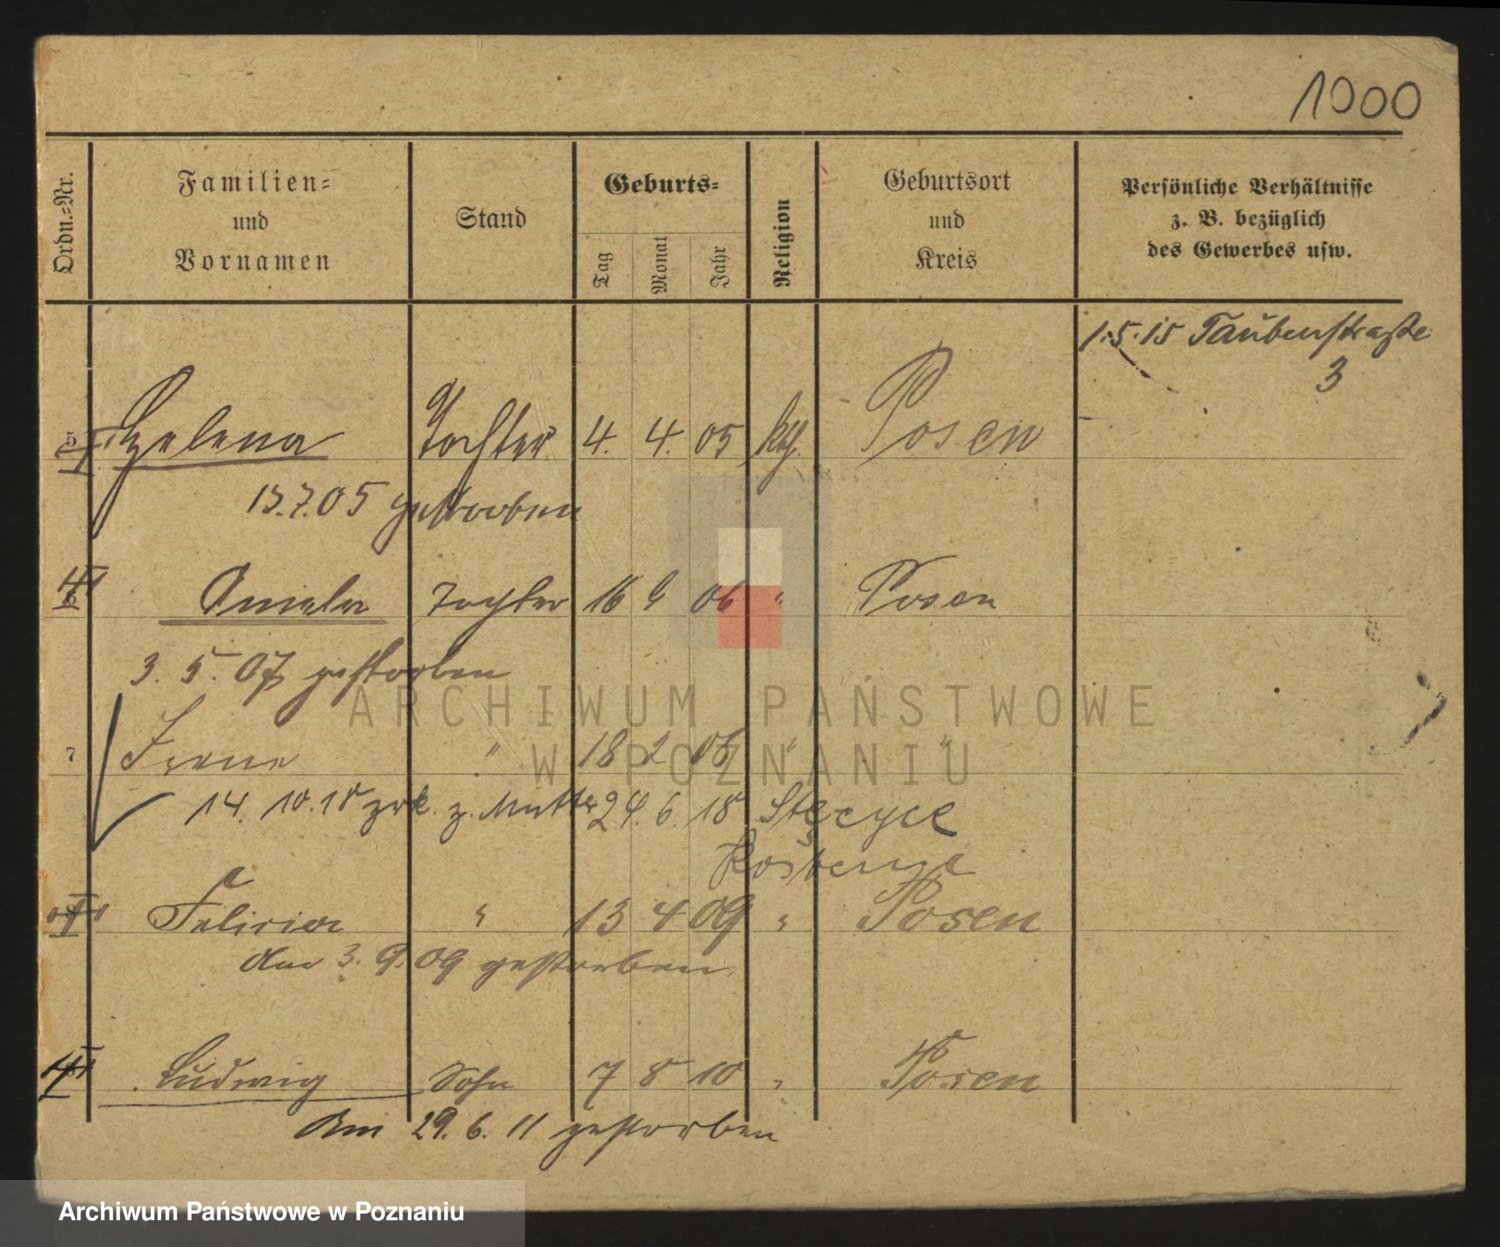 1000
Ordn.=Nr.
Familien=
und
Vornamen
Stand
Geburts=
Tag
Monat
Jahr
Religion
Geburtsort
und
Kreis
Persönliche Verhältnisse
z. B. bezüglich
des Gewerbes usw.
1.5.15 Taubenstraße
3
5 Helena Tochter 4. 4. 05 kth. Posen
15.7.05 gestorben
6 Aniela Tochter 16 9 06 " Posen
3. 5. 07 gestorben
ARCHIWUM PAŃSTWOWE
W POZNANIU
7 Irene " 18 2 08 " "
14. 10. 18 zrk. z. Mutter 24. 6. 18
Felicia " 13 4 09 " Posen
am 3. 9. 09 gestorben
Ludwig Sohn 7 8 10 " Posen
Am 29. 6. 11 gestorben
Archiwum Państwowe w Poznaniu